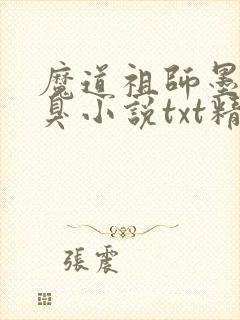 魔道祖師墨
臭小説txt精
張震